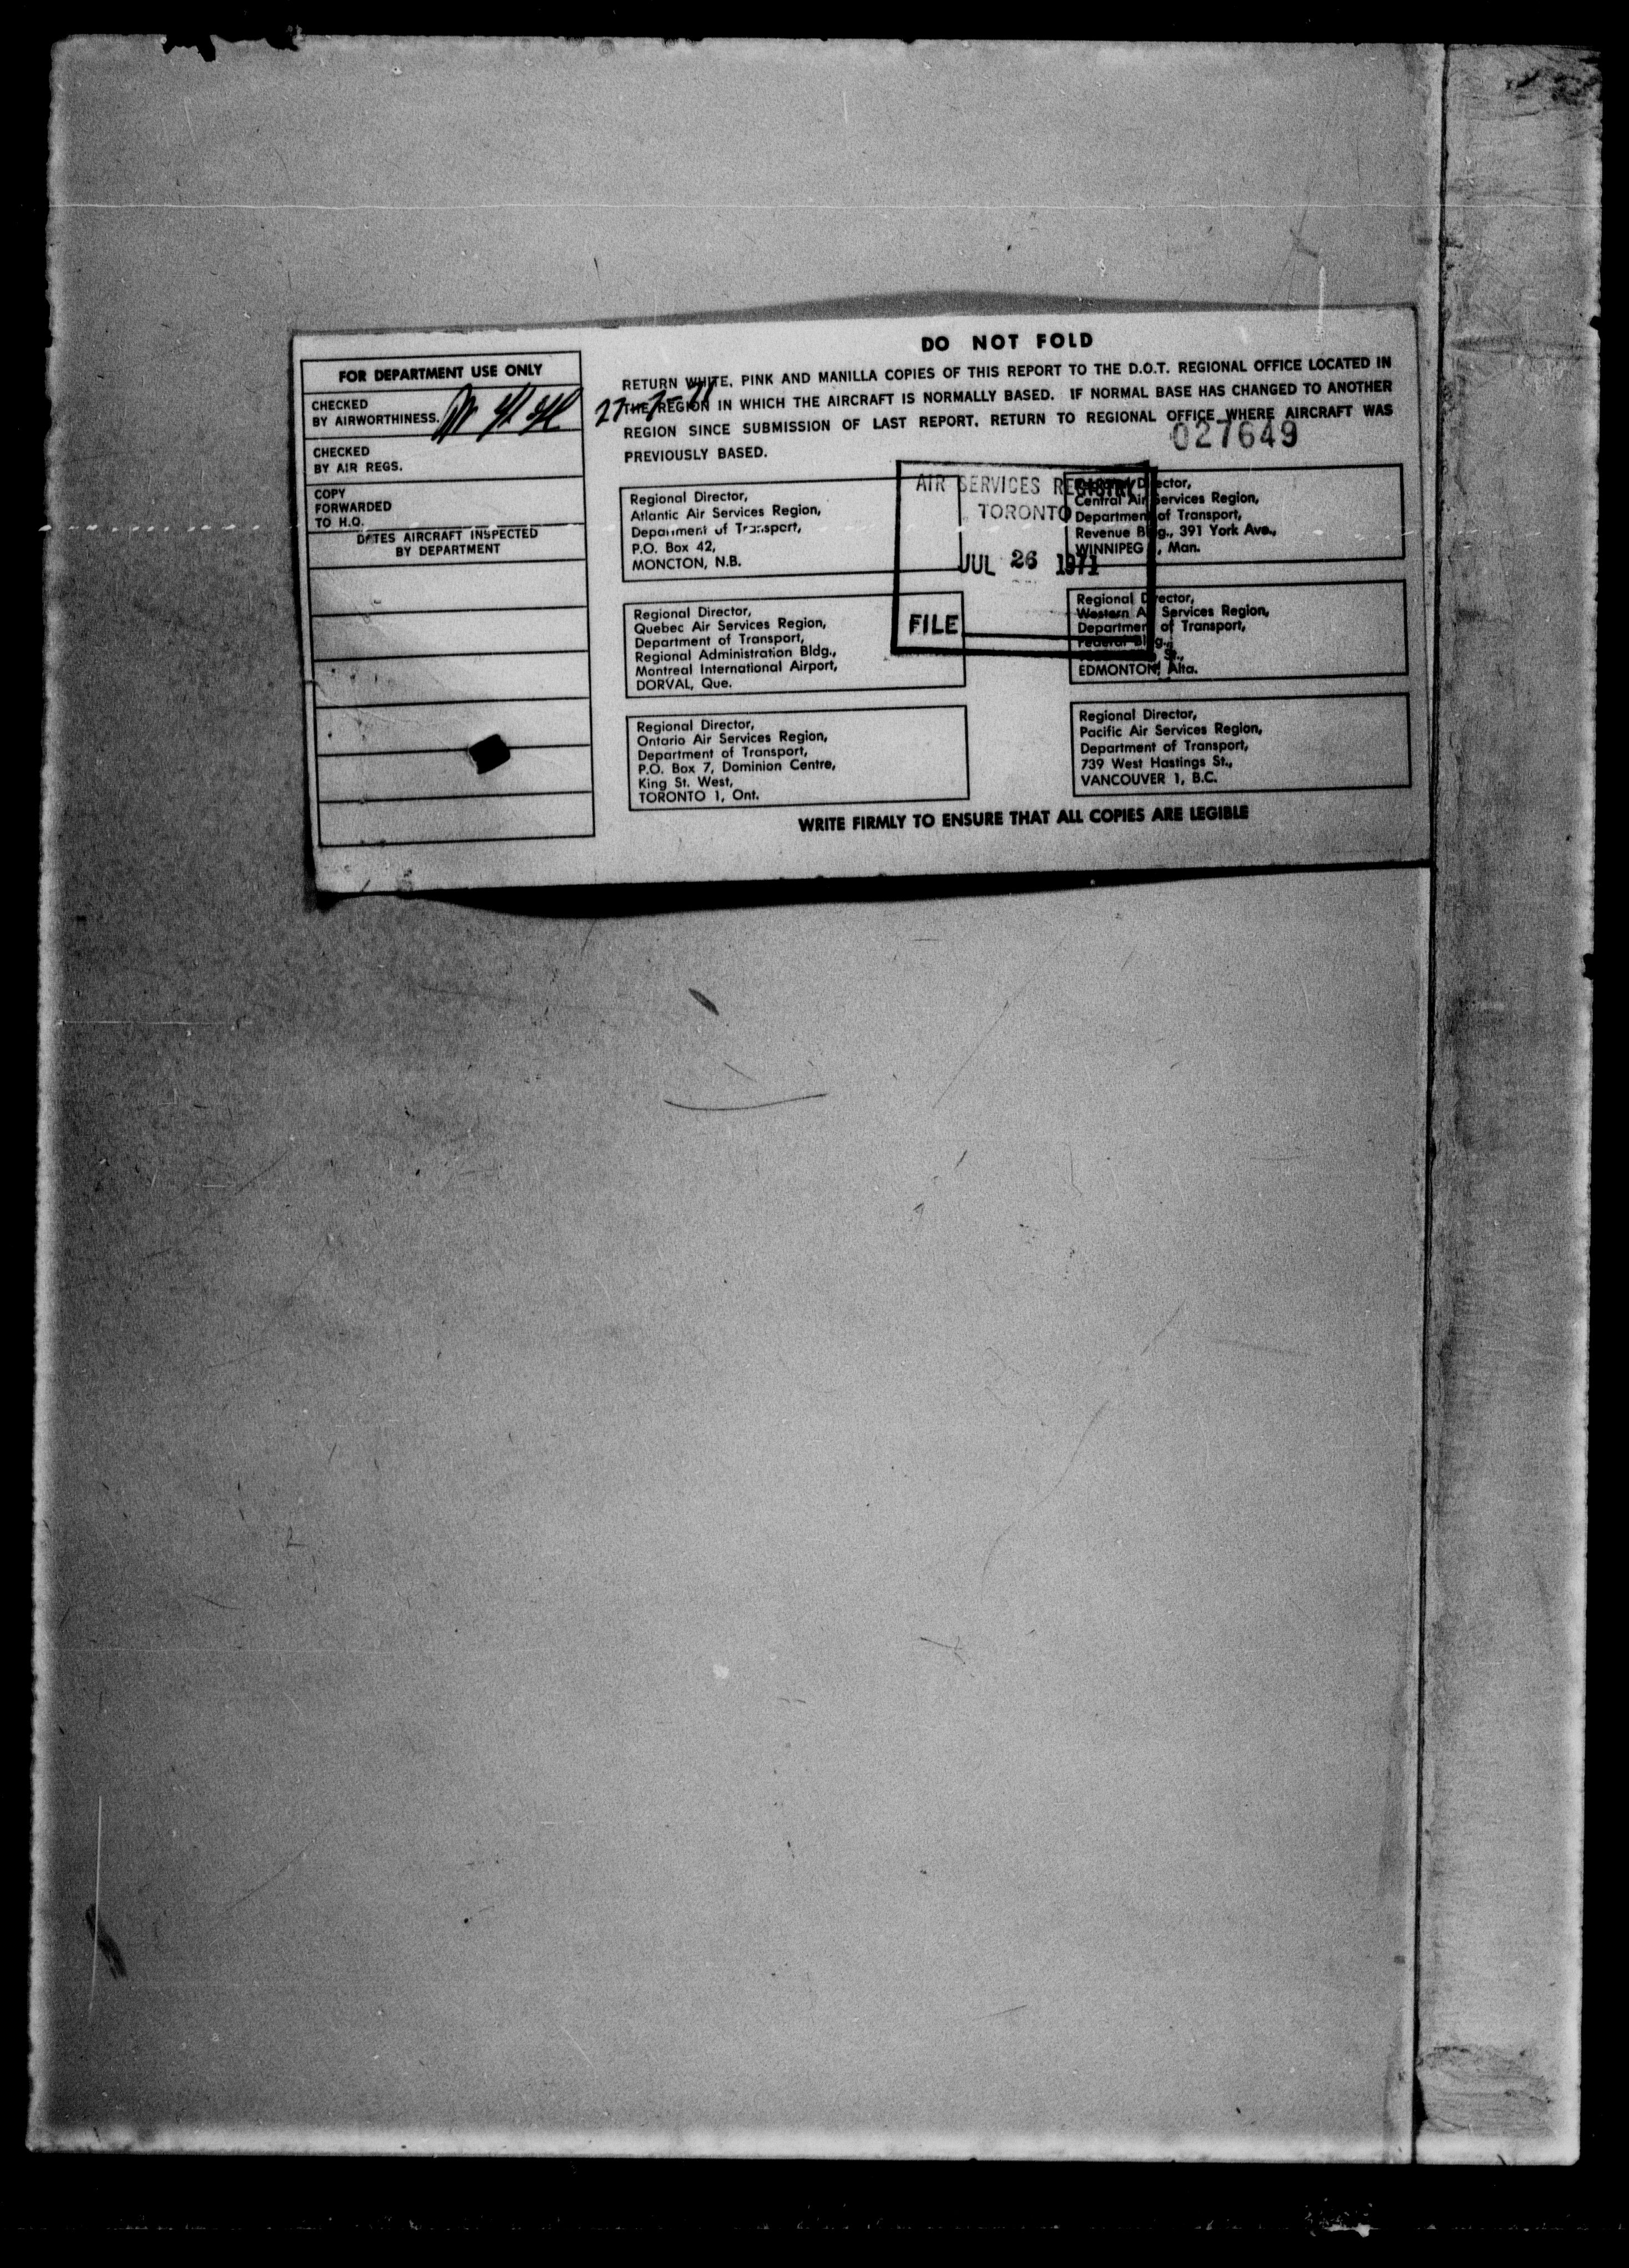 DO NOT FOLD
FOR DEPARTMENT USE ONLY
CHECKED
BY AIRWORTHINESS.
CHECKED
BY AIR REGS.
COPY
FORWARDED
TO H.Q.
DATES AIRCRAFT INSPECTED
BY DEPARTMENT
27-7-71
RETURN WHITE, PINK AND MANILLA COPIES OF THIS REPORT TO THE D.O.T. REGIONAL OFFICE LOCATED IN
THE REGION IN WHICH THE AIRCRAFT IS NORMALLY BASED. IF NORMAL BASE HAS CHANGED TO ANOTHER
REGION SINCE SUBMISSION OF LAST REPORT, RETURN TO REGIONAL OFFICE WHERE AIRCRAFT WAS
PREVIOUSLY BASED.
027649
Regional Director,
Atlantic Air Services Region,
Department of Transport,
P.O. Box 42,
MONCTON, N.B.
AIR SERVICES REGISTRY
TORONTO
JUL 26 1971
FILE
Regional Director,
Central Air Services Region,
Department of Transport,
Revenue Bldg., 391 York Ave.,
WINNIPEG , Man.
Regional Director,
Quebec Air Services Region,
Department of Transport,
Regional Administration Bldg.,
Montreal International Airport,
DORVAL, Que.
Regional Director,
Western Air Services Region,
Department of Transport,
Federal Bldg.,
St.,
EDMONTON, Alta.
Regional Director,
Ontario Air Services Region,
Department of Transport,
P.O. Box 7, Dominion Centre,
King St. West,
TORONTO 1, Ont.
Regional Director,
Pacific Air Services Region,
Department of Transport,
739 West Hastings St.,
VANCOUVER 1, B.C.
WRITE FIRMLY TO ENSURE THAT ALL COPIES ARE LEGIBLE